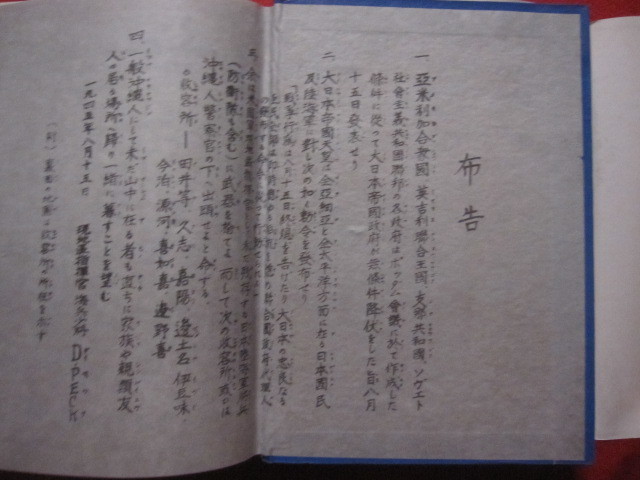 布告
一、亞米利加合衆國、英吉利聯合王國、支那共和國、ソヴエト
社會主義共和國聯邦の各政府はポツダム會議に於て作成した
條件に從つて大日本帝國政府が無條件降伏をした旨八月
十五日發表せり
二、大日本帝國天皇は全亞細亞と全太平洋方面に在る日本國民
及陸海軍に對し次の如く勅令を發布せり
「戰爭行爲は八月十五日終焉を告げたり大日本の忠良なる
する日本陸海軍將兵
(防衛隊を含む)に武器を捨てよ 而して次の收容所或いは
沖縄人警察官の下へ出頭せよと命ずる
收容所—田井等、久志、嘉陽、邊土名、伊豆味、
今泊、源河、喜如嘉、邊野喜
四、一般沖縄人にして未だ山中に在る者も直ちに家族や親類友
人の居る場所へ歸り一緒に暮すことを望む
一九四五年八月十五日
現地區指揮官 海兵少將 D PECK